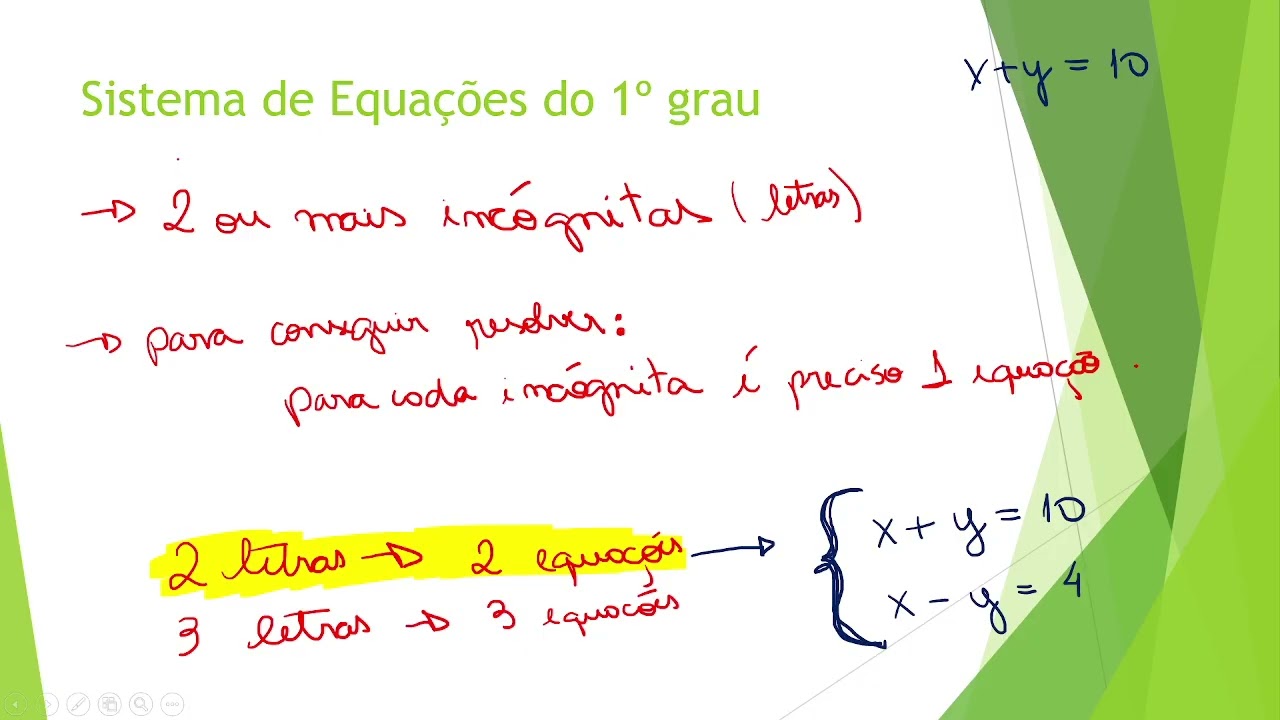 Sistema de Equações do 1º grau
x+y = 10
→ 2 ou mais incógnitas (letras)
→ para conseguir resolver:
para cada incógnita é preciso 1 equação.
2 letras → 2 equações → { x + y = 10
x - y = 4
3 letras → 3 equações